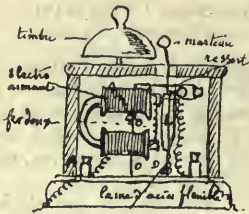 timbre
marteau
ressort
électro
aimant
fer doux
lame d'acier flexible